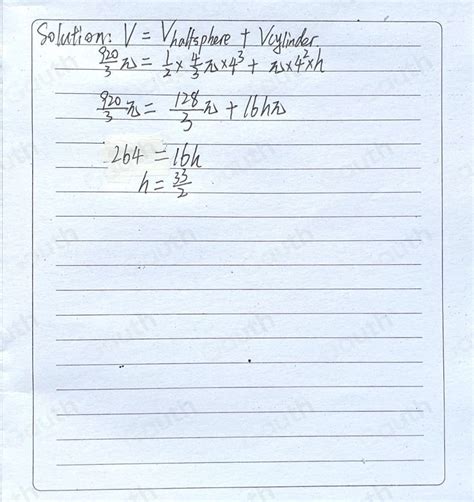 Solution: V = Vhalfsphere + Vcylinder.
920/3 π = 1/2 × 4/3 π × 4³ + π × 4² × h
920/3 π = 128/3 π + 16hπ
264 = 16h
h = 33/2